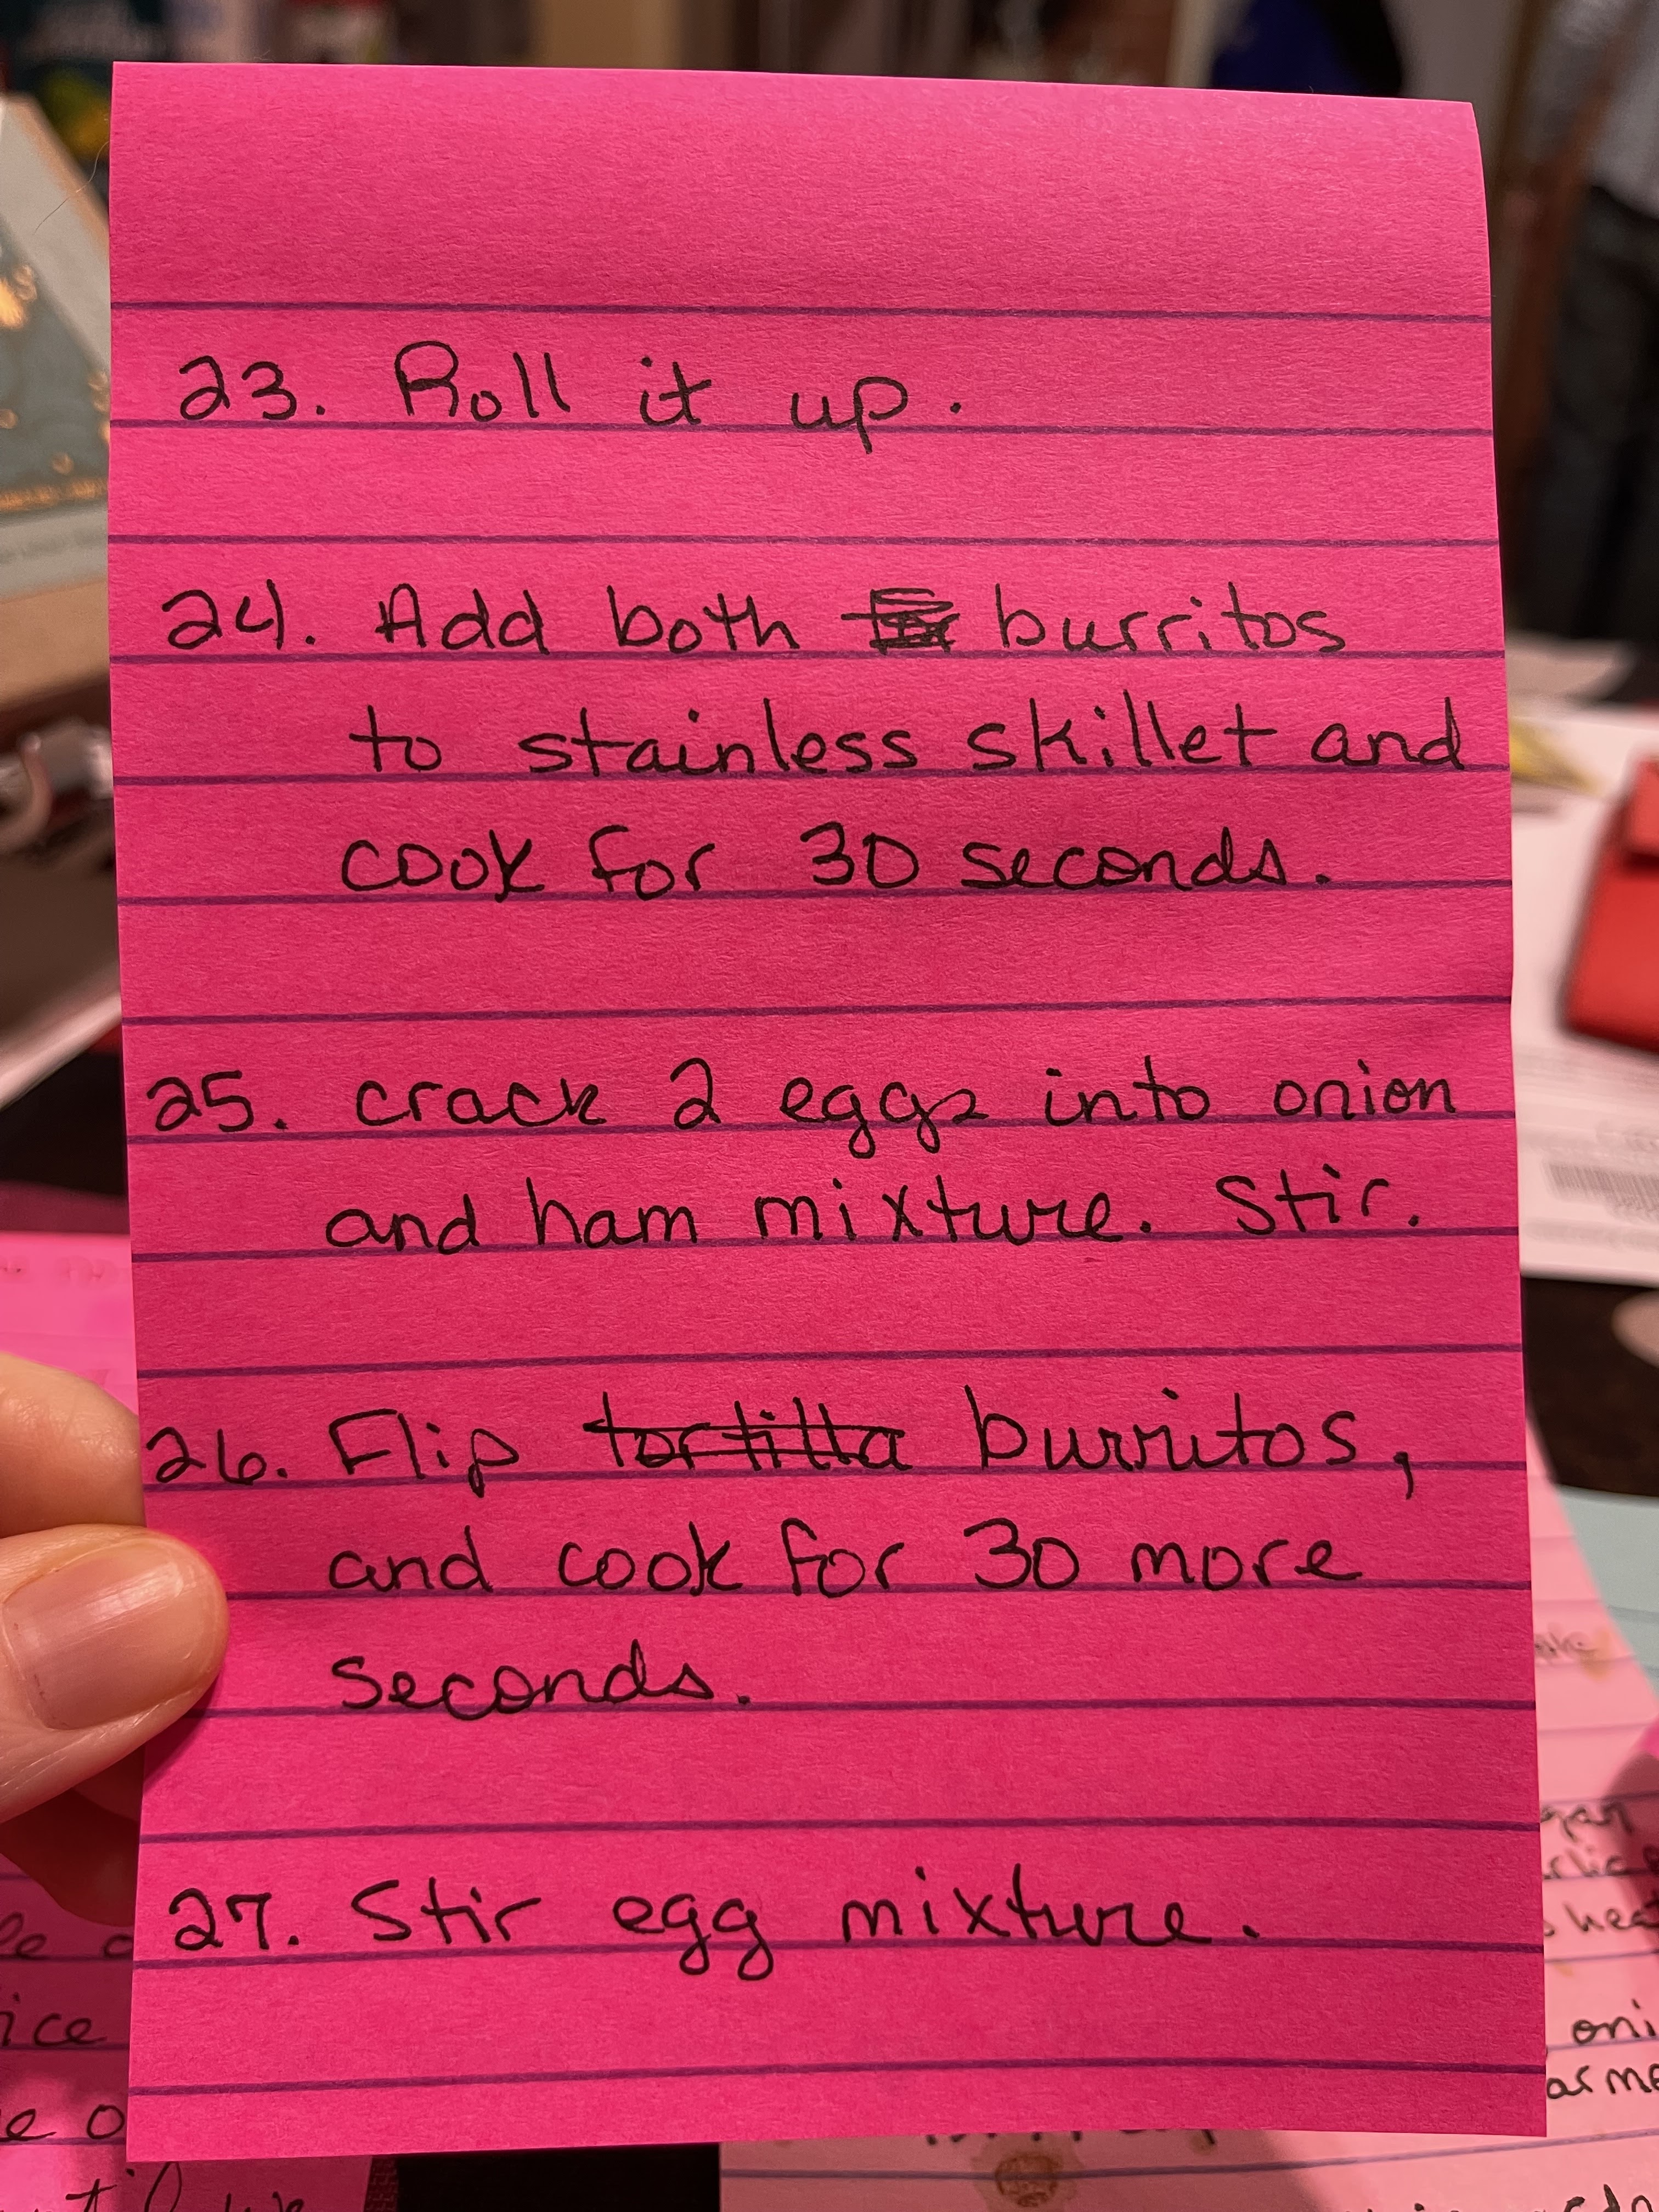 23. Roll it up.
24. Add both burritos
to stainless skillet and
cook for 30 seconds.
25. crack 2 eggs into onion
and ham mixture. Stir.
26. Flip tortilla burritos,
and cook for 30 more
seconds.
27. Stir egg mixture.